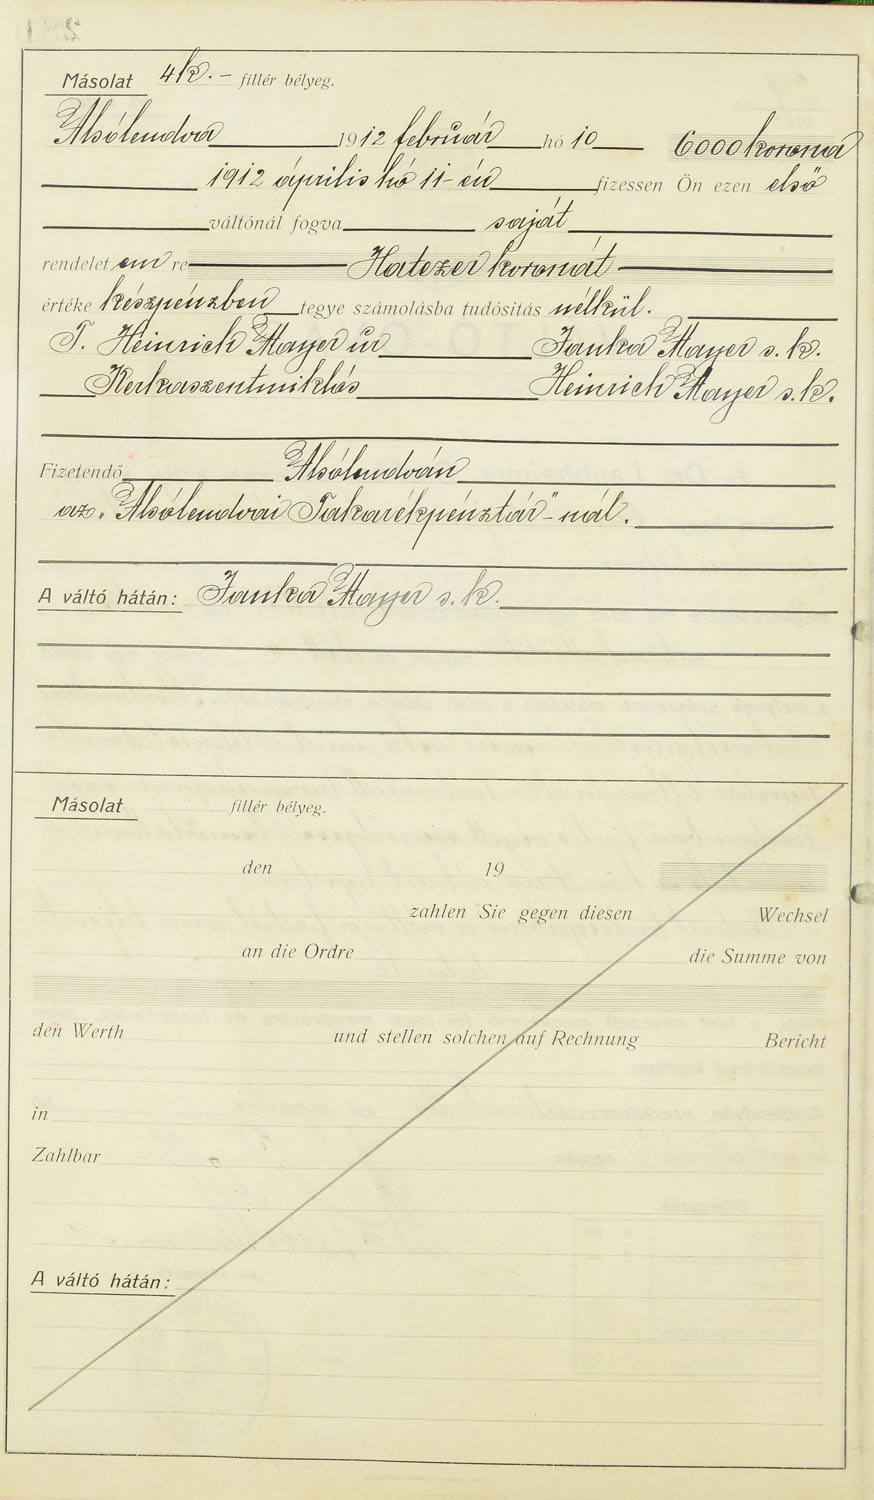 Másolat 4 k. – fillér bélyeg.
Alsólendva 1912 február hó 10 6000 korona
1912 április hó 11-én fizessen Ön ezen első
váltónál fogva saját
rendeletemre Hatezer koronát
értéke készpénzben tegye számolásba tudósitás nélkül.
T. Heinrich Mayer úr Janka Mayer s. k.
Kerkaszentmiklós Heinrich Mayer s. k.
Fizetendő Alsólendván
az „Alsólendvai Takarékpénztár"-nál.
A váltó hátán: Janka Mayer s. k.
Másolat fillér bélyeg.
den 19
zahlen Sie gegen diesen Wechsel
an die Ordre die Summe von
den Werth und stellen solchen auf Rechnung Bericht
in
Zahlbar
A váltó hátán: